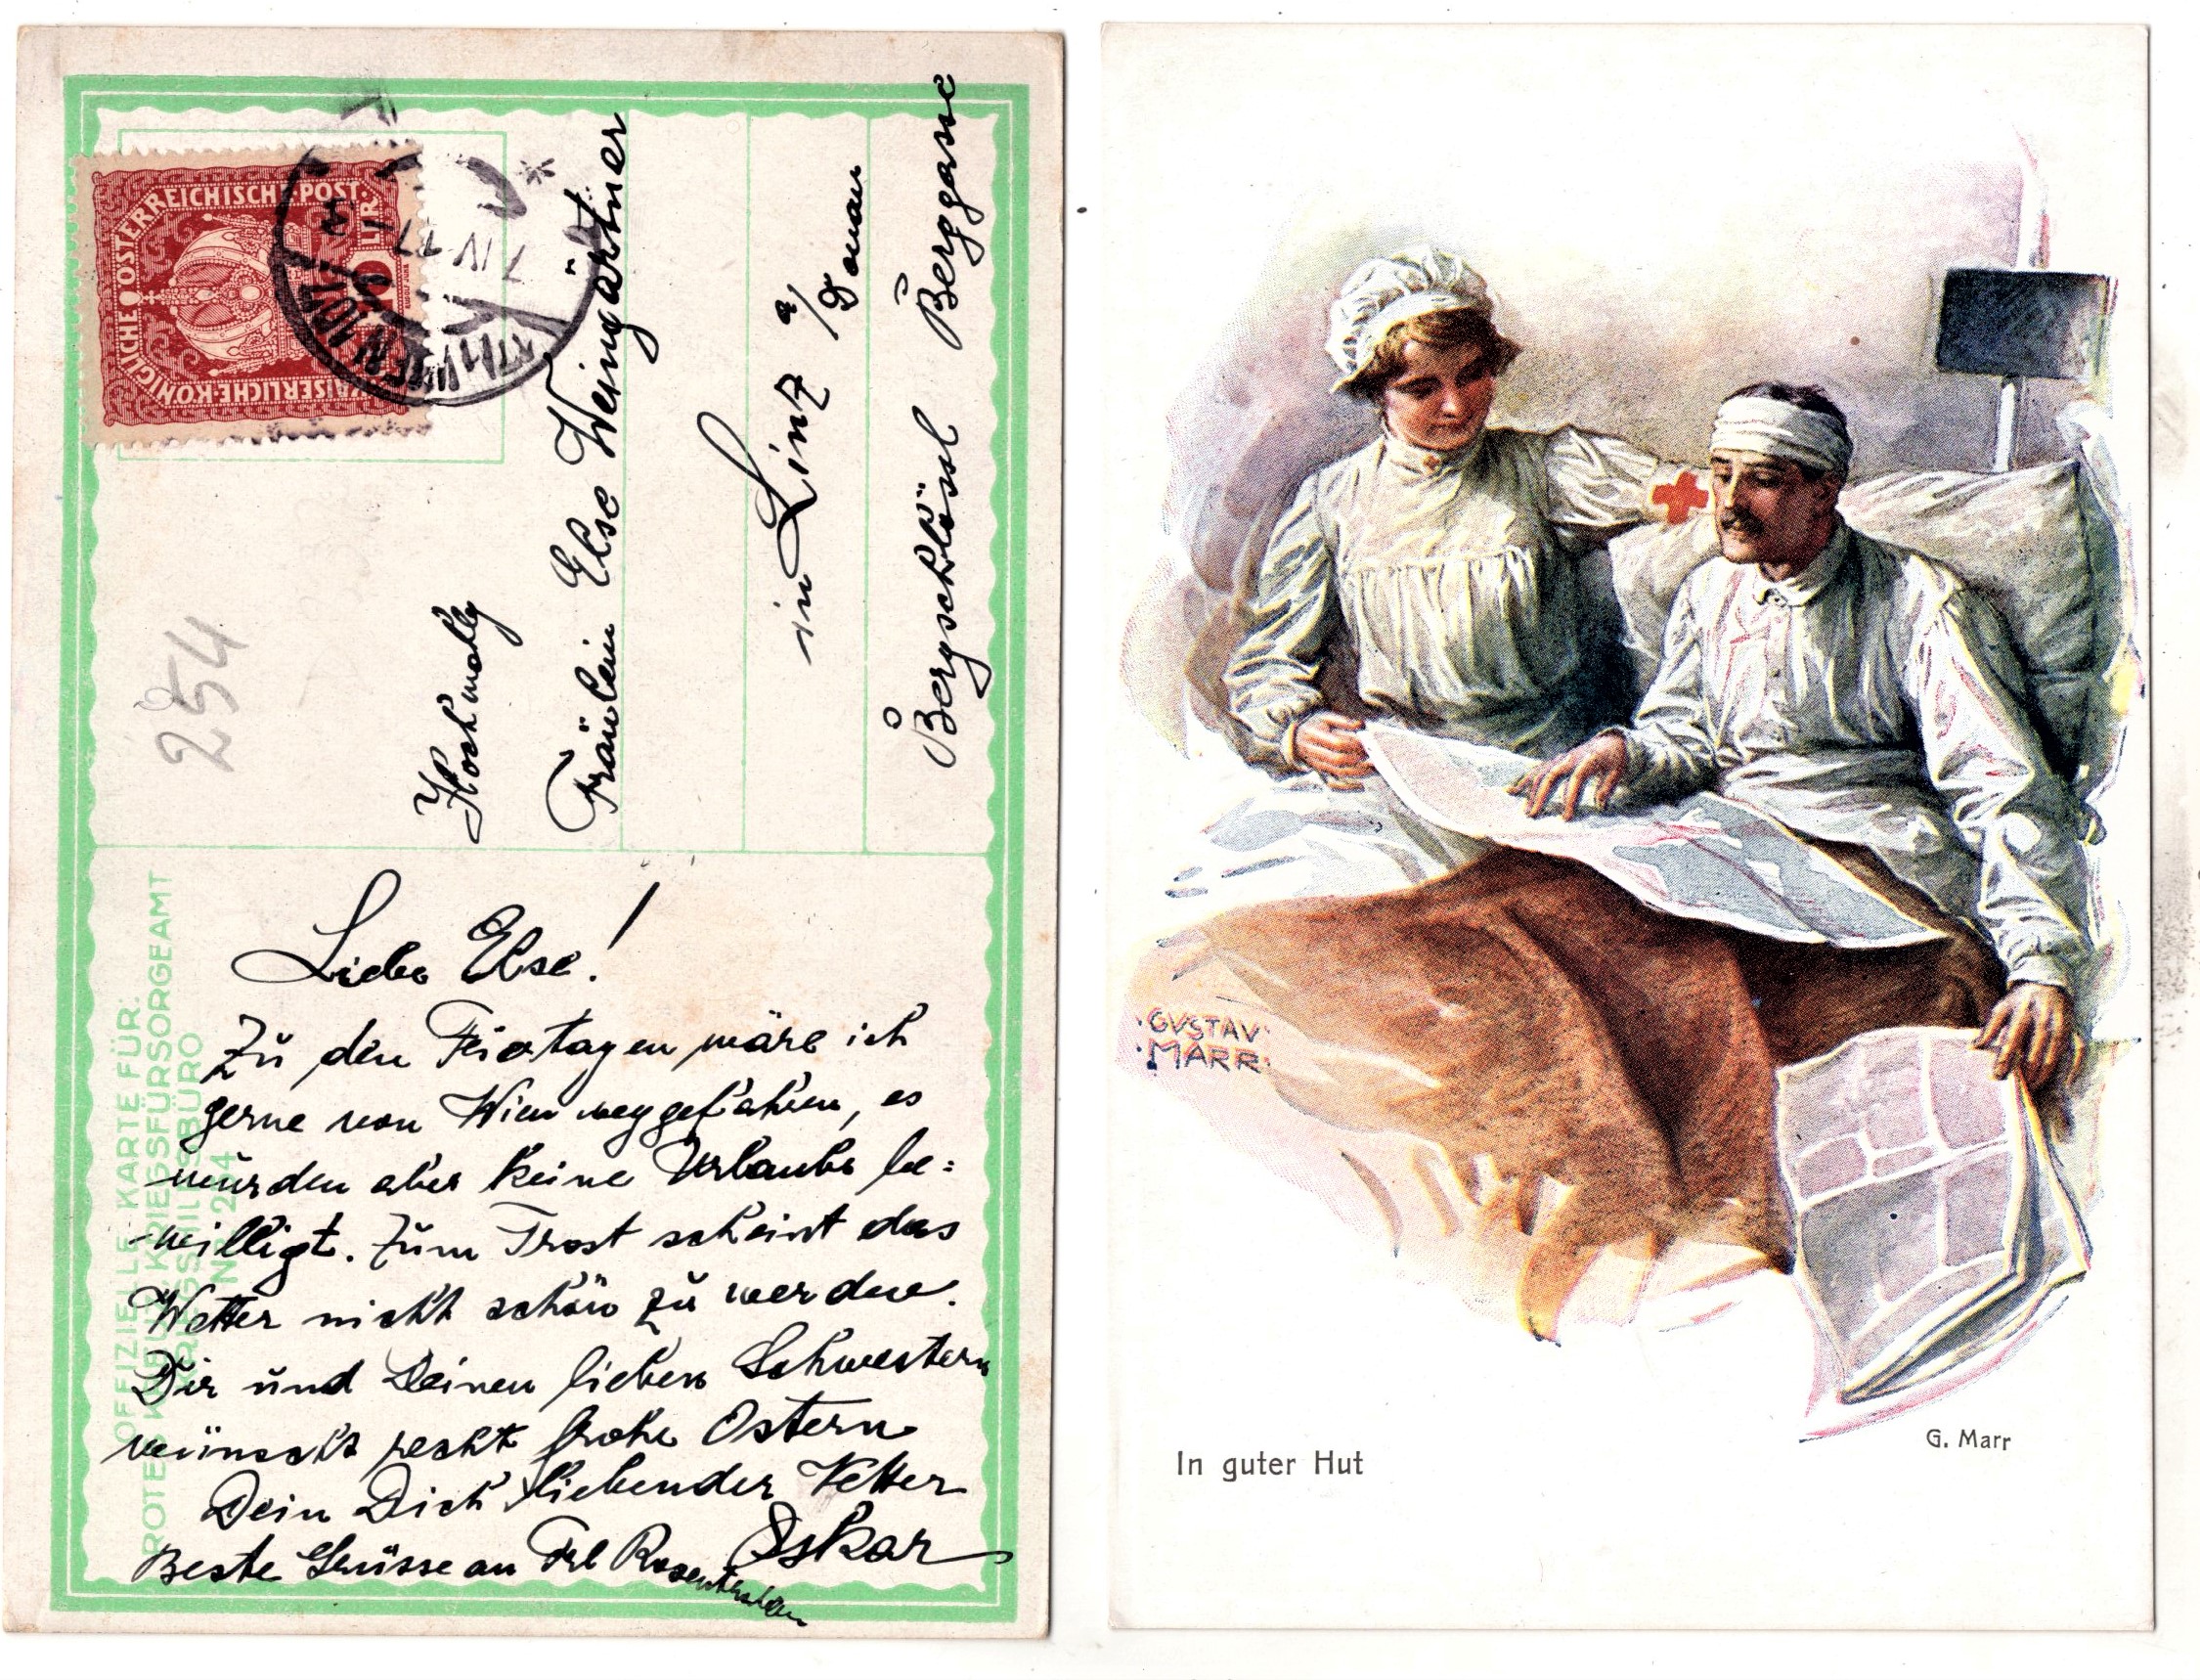 KAISERLICHE KÖNIGLICHE ÖSTERREICHISCHE POST.
10
7 IV 17
254
Hochwohlg
Fräulein Else Weingärtner
in Linz a/Donau
Bergschlössl Berggasse
OFFIZIELLE KARTE FÜR:
ROTES KREUZ, KRIEGSFÜRSORGEAMT
KRIEGSHILFSBÜRO
NR. 254
Liebe Else!
Zu den Feiertagen wäre ich
gerne von Wien weggefahren, es
wurden aber keine Urlaube be=
willigt. Zum Trost scheint das
Wetter nicht schön zu werden.
Dir und Deinen lieben Schwestern
wünscht recht frohe Ostern
Dein Dich liebender Vetter
Oskar
Beste Grüsse an Frl
GVSTAV
MARR
G. Marr
In guter Hut